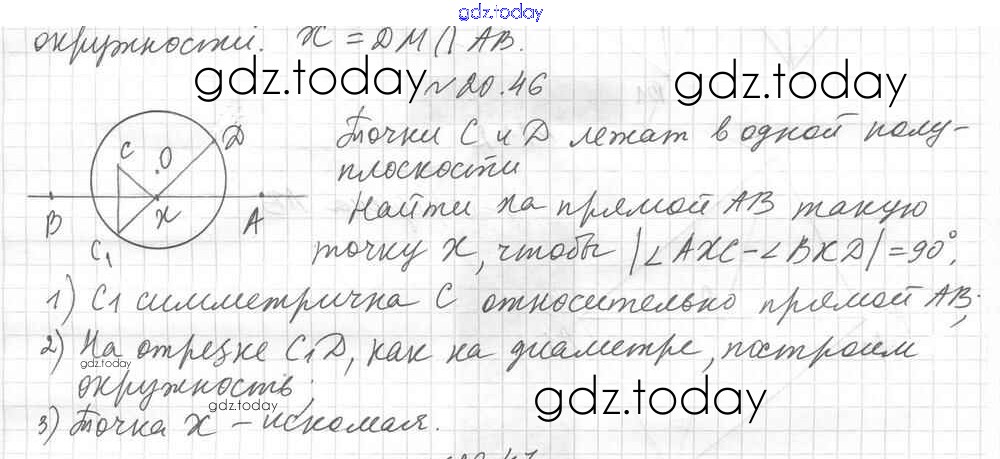 gdz.today
окружности. X = DM ∩ AB.
gdz.today
gdz.today
№20.46
Точки C и D лежат в одной полу-
плоскости
Найти на прямой AB такую
точку X, чтобы |∠AXC - ∠BXD| = 90°.
C
O
D
B
X
A
C₁
1) C1 симметрична C относительно прямой AB;
2) На отрезке C₁D, как на диаметре, построим
gdz.today
окружность;
gdz.today
gdz.today
3) Точка X – искомая.